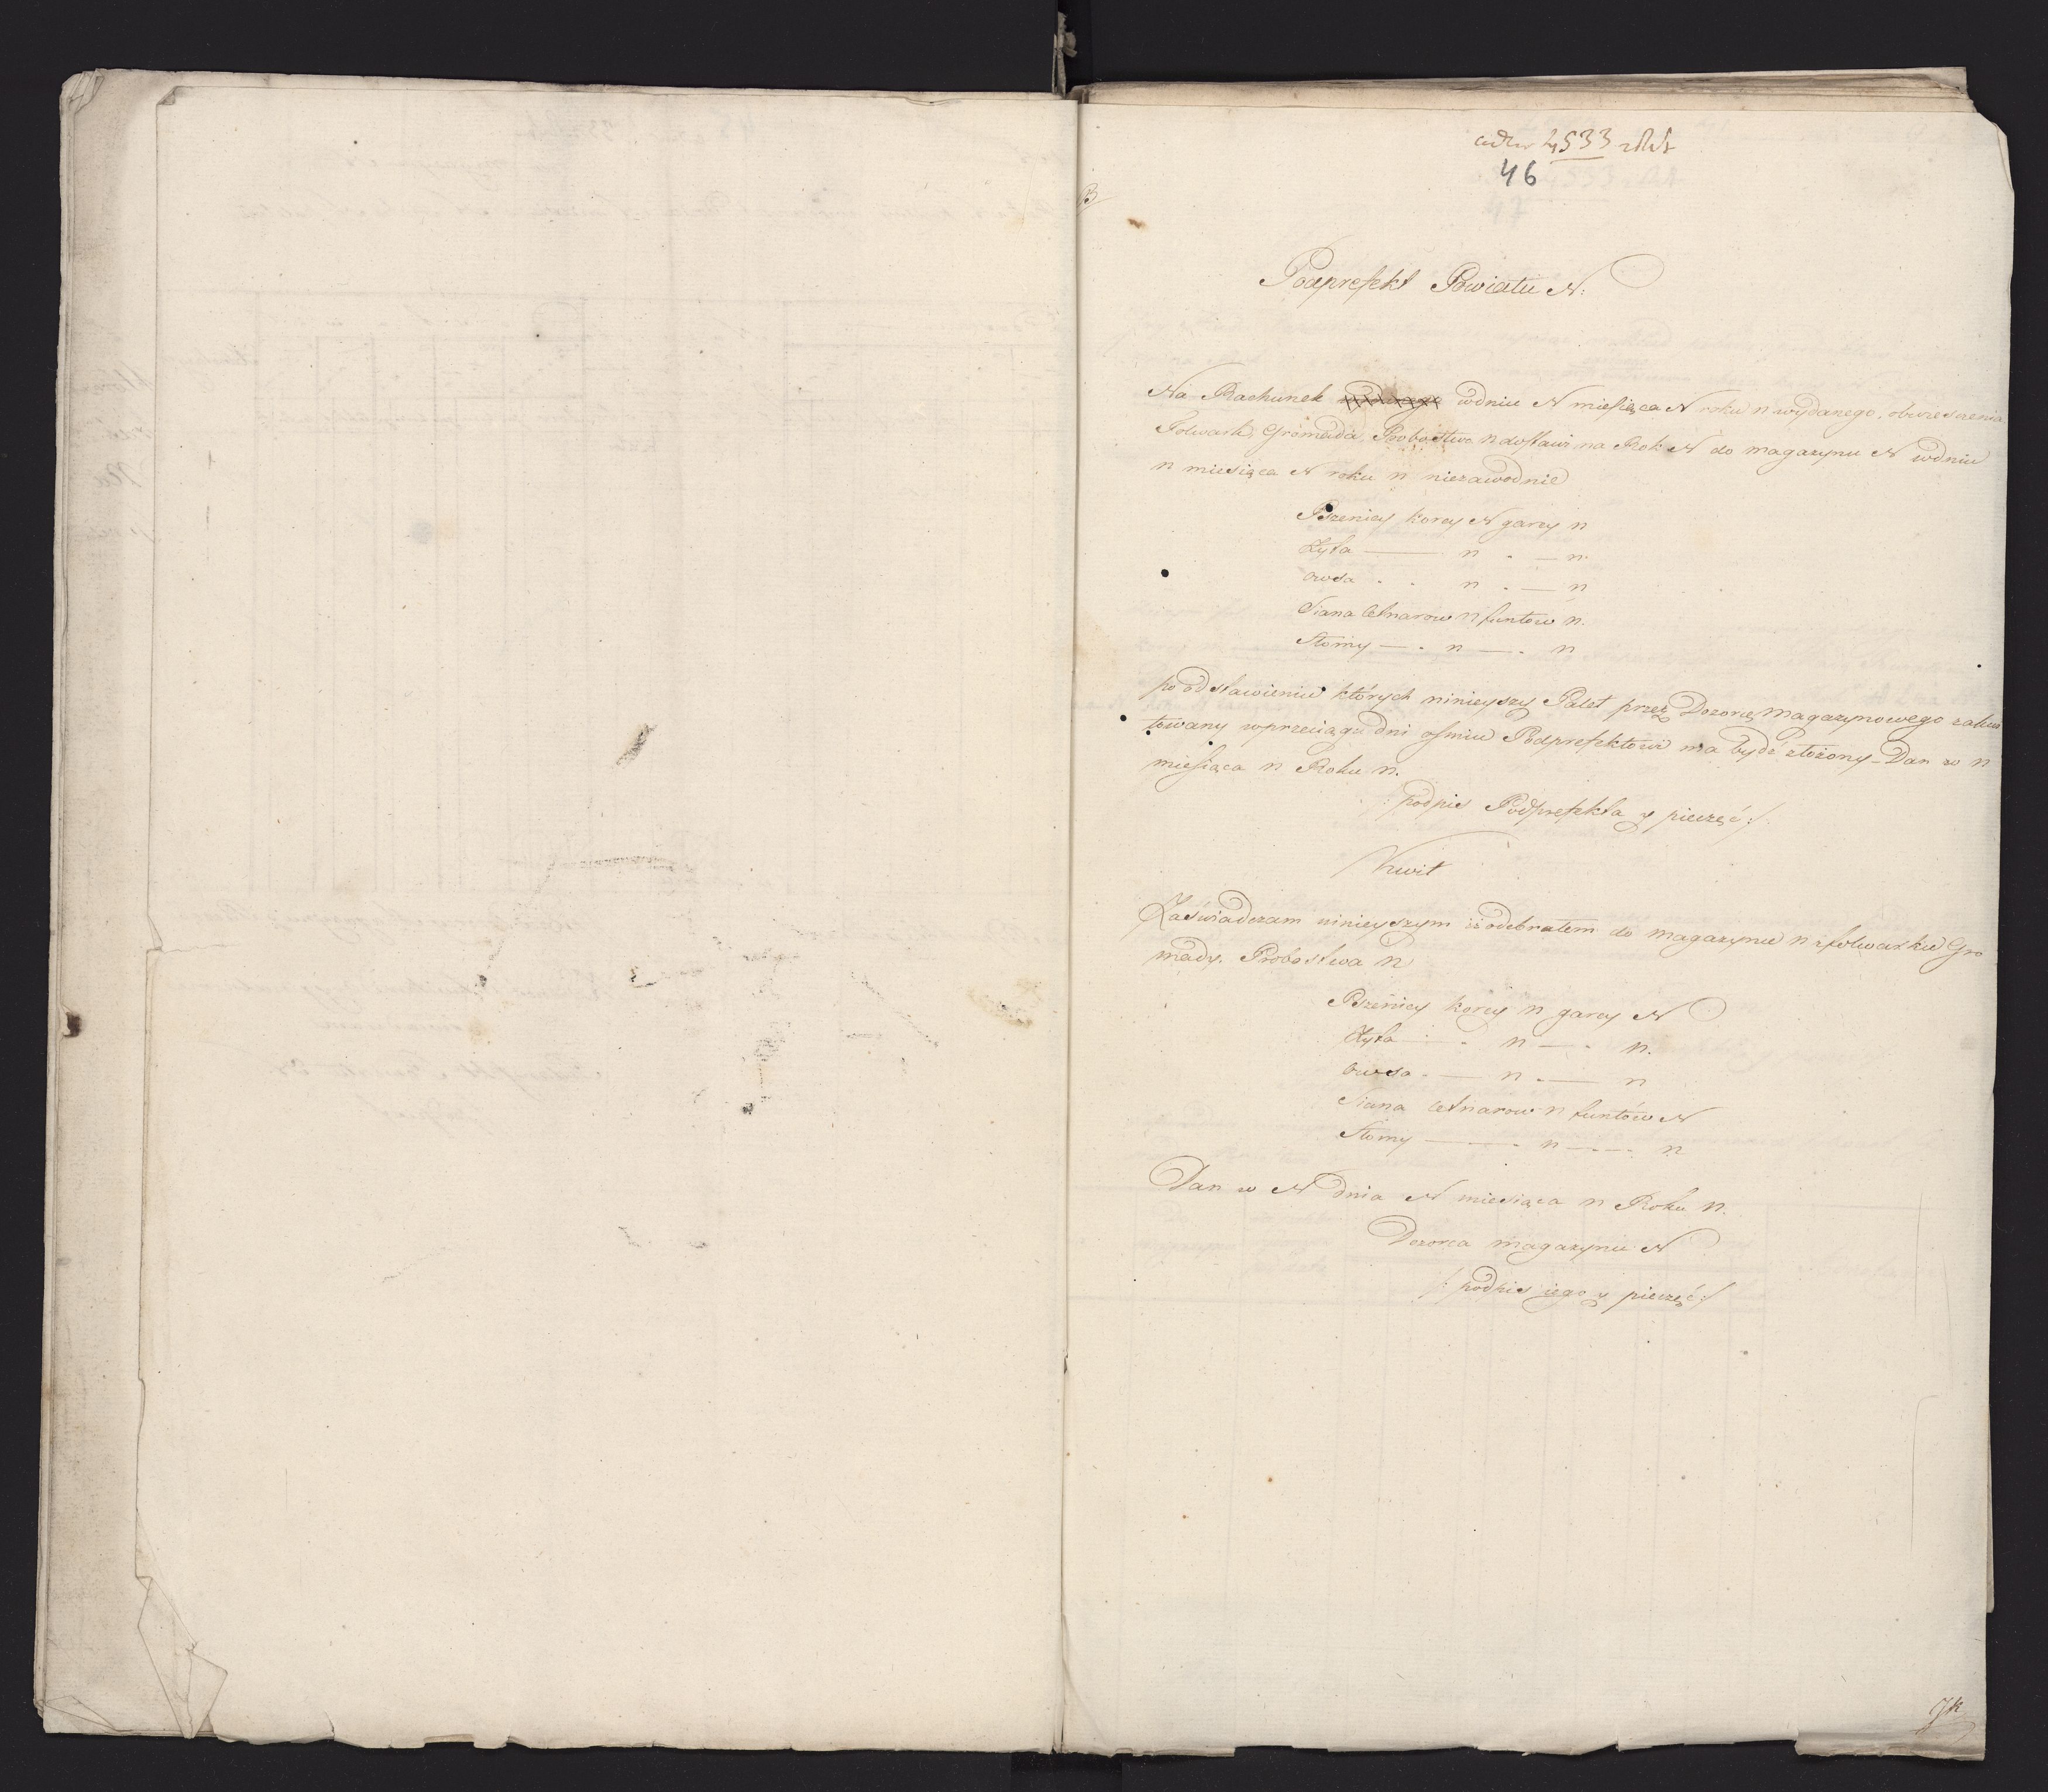 4533
46
B
Podprefekt Powiatu N:
Na Rachunek wdniu N miesiąca N roku n wydanego, obwieszczenia
Folwark, Gromada, Probostwo N dostawi na Rok N do magazynu N wdniu
n miesiąca N roku n niezawodnie
Pszenicy korcy N garcy n
Żyta — n . — n.
owsa . . n . — n
Siana Cetnarow N funtow n.
Słomy — . n — . n
po odstawieniu których ninieyszy Palet przez Dozorcę magazynowego zakwi
towany wprzeciągu dni osmiu Podprefektowi ma bydź złożony – Dan w n
miesiąca n Roku n.
/: podpis Podprefekta y pieczęć :/
Kwit
Zaświadczam ninieyszym iż odebrałem do magazynu n z folwarku Gro
mady. Probostwa N
Pszenicy korcy n garcy N
Żyta — . n — . n.
owsa . — n . — n
Siana cetnarow n funtów N
Słomy — . n — . n
Dan w N dnia N miesiąca n Roku n.
Dozorca magazynu N
/: podpis iego y pieczęć :/